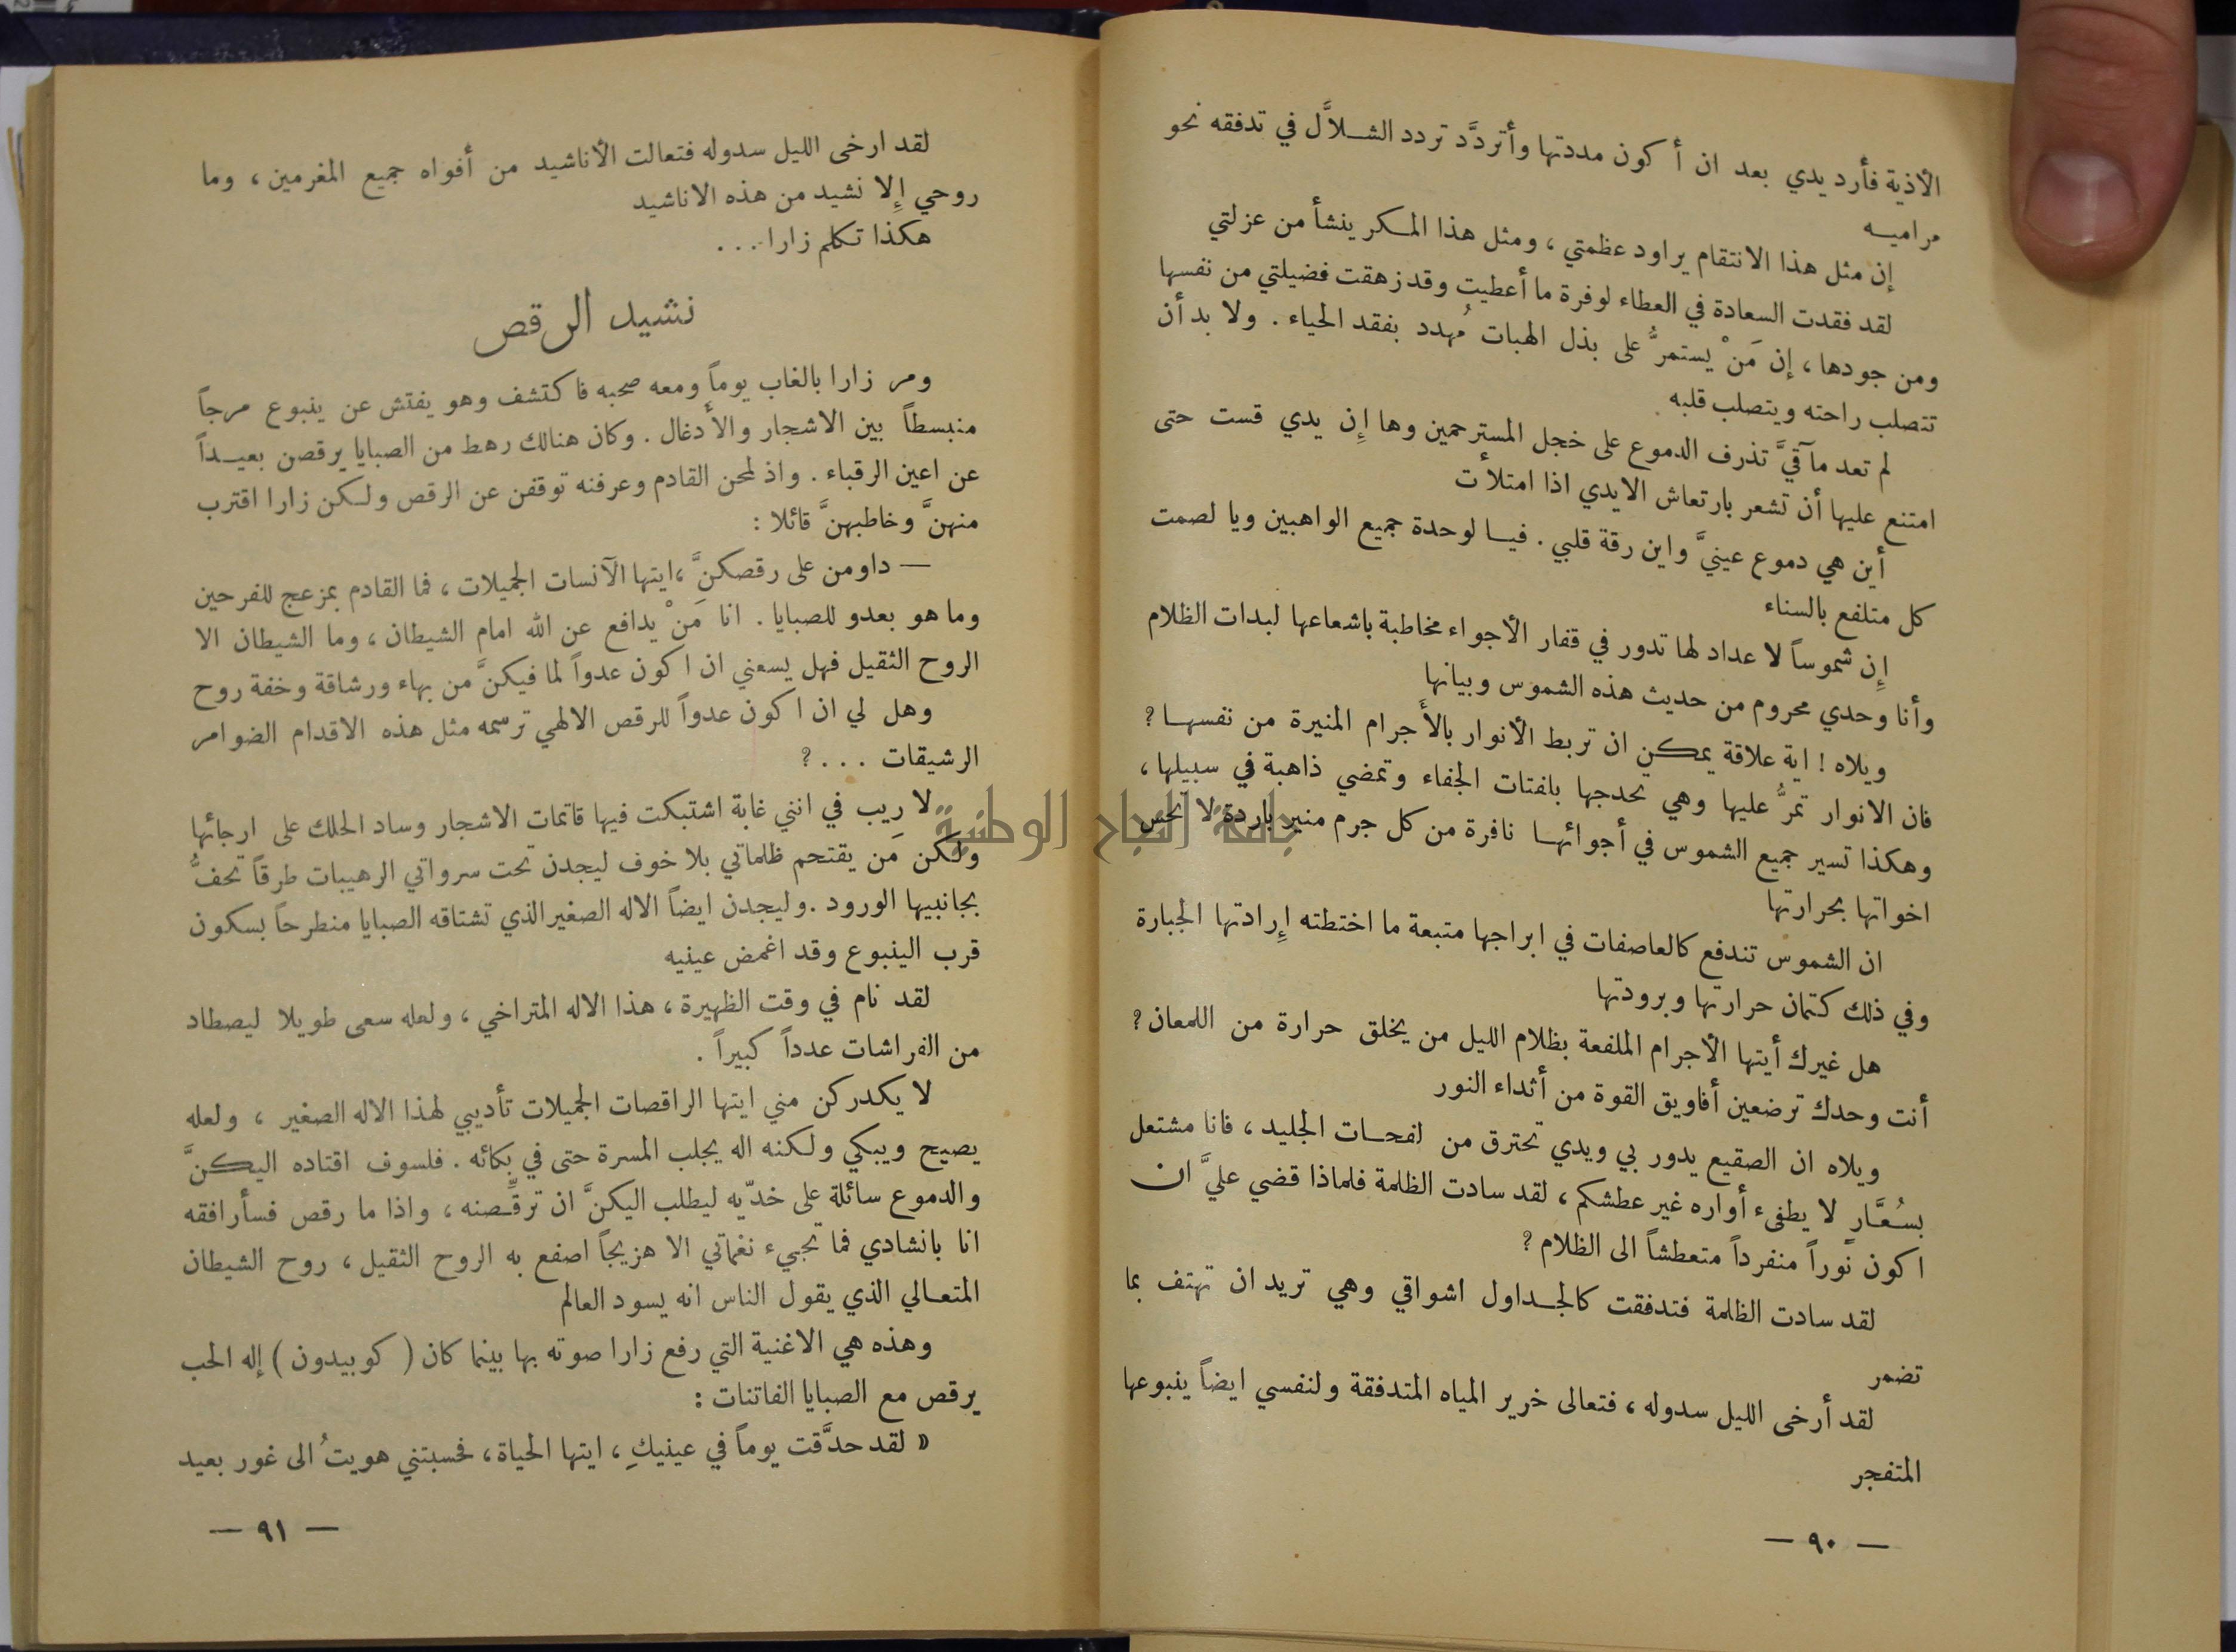 الأذية فأرد يدي بعد ان أكون مددتها وأتردَّد تردد الشـلاَّل في تدفقه نحو
مراميـه
إن مثل هذا الانتقام يراود عظمتي ، ومثل هذا المـكر ينشأ من عزلتي
لقد فقدت السعادة في العطاء لوفرة ما أعطيت وقد زهقت فضيلتي من نفسها
ومن جودها ، إن مَنْ يستمرُّ على بذل الهبات مُهدد بفقد الحياء . ولا بد أن
تتصلب راحته ويتصلب قلبه
لم تعد مآقيَّ تذرف الدموع على خجل المسترحمين وها إِن يدي قست حتى
امتنع عليها أن تشعر بارتعاش الايدي اذا امتلأت
أين هي دموع عينيَّ واين رقة قلبي . فيـا لوحدة جميع الواهبين ويا لصمت
كل متلفع بالسناء
إِن شموساً لا عداد لها تدور في قفار الأجواء مخاطبة باشعاعها لبدات الظلام
وأنا وحدي محروم من حديث هذه الشموس وبيانها
ويلاه ! اية علاقة يمكن ان تربط الأنوار بالأجرام المنيرة من نفسهـا ؟
فان الانوار تمرُّ عليها وهي تحدجها بلفتات الجفاء وتمضي ذاهبة في سبيلها ،
وهكذا تسير جميع الشموس في أجوائهـا نافرة من كل جرم منير باردة لا تحس
اخواتها بحرارتها
ان الشموس تندفع كالعاصفات في ابراجها متبعة ما اختطته إِرادتها الجبارة
وفي ذلك كتمان حرارتها وبرودتها
هل غيرك أيتها الأجرام الملفعة بظلام الليل من يخلق حرارة من اللمعان ؟
أنت وحدك ترضعين أفاويق القوة من أثداء النور
ويلاه ان الصقيع يدور بي ويدي تحترق من لفحـات الجليد ، فانا مشتعل
بسُعَّـارٍ لا يطفىء أواره غير عطشكم ، لقد سادت الظلمة فلماذا قضي عليَّ ان
اكون نوراً منفرداً متعطشاً الى الظلام ؟
لقد سادت الظلمة فتدفقت كالجـداول اشواقي وهي تريد ان تهتف بما
تضمر
لقد أرخى الليل سدوله ، فتعالى خرير المياه المتدفقة ولنفسي ايضاً ينبوعها
المتفجر
— ٩٠ —
لقد ارخى الليل سدوله فتعالت الأناشيد من أفواه جميع المغرمين ، وما
روحي إِلا نشيد من هذه الاناشيد
هكذا تكلم زارا . . .
نشيد الرقص
ومر زارا بالغاب يوماً ومعه صحبه فاكتشف وهو يفتش عن ينبوع مرجاً
منبسطاً بين الاشجار والأدغال . وكان هنالك رهط من الصبايا يرقصن بعيـداً
عن اعين الرقباء . واذ لمحن القادم وعرفنه توقفن عن الرقص ولـكن زارا اقترب
منهنَّ وخاطبهنَّ قائلا :
— داومن على رقصكنَّ ، ايتها الآنسات الجميلات ، فما القادم بمزعج للفرحين
وما هو بعدو للصبايا . انا مَنْ يدافع عن الله امام الشيطان ، وما الشيطان الا
الروح الثقيل فهل يسعني ان اكون عدواً لما فيكنَّ من بهاء ورشاقة وخفة روح
وهل لي ان اكون عدواً للرقص الالهي ترسمه مثل هذه الاقدام الضوامر
الرشيقات . . . ؟
لا ريب في انني غابة اشتبكت فيها قاتمات الاشجار وساد الحلك على ارجائها
ولكن مَن يقتحم ظلماتي بلا خوف ليجدن تحت سرواتي الرهيبات طرقاً تحفُّ
بجانبيها الورود . وليجدن ايضاً الاله الصغير الذي تشتاقه الصبايا منطرحاً بسكون
قرب الينبوع وقد اغمض عينيه
لقد نام في وقت الظهيرة ، هذا الاله المتراخي ، ولعله سعى طويلا ليصطاد
من الفراشات عدداً كبيراً .
لا يكدركن مني ايتها الراقصات الجميلات تأديبي لهذا الاله الصغير ، ولعله
يصيح ويبكي ولكنه اله يجلب المسرة حتى في بكائه . فلسوف اقتاده اليكنَّ
والدموع سائلة على خدّيه ليطلب اليكنَّ ان ترقّـِصنه ، واذا ما رقص فسأرافقه
انا بانشادي فما تجيء نغماتي الا هزيجاً اصفع به الروح الثقيل ، روح الشيطان
المتعـالي الذي يقول الناس انه يسود العالم
وهذه هي الاغنية التي رفع زارا صوته بها بينما كان ( كوبيدون ) إله الحب
يرقص مع الصبايا الفاتنات :
« لقد حدَّقت يوماً في عينيكِ ، ايتها الحياة ، فحسبتني هويتُ الى غور بعيد
— ٩١ —
جامعة النجاح الوطنية